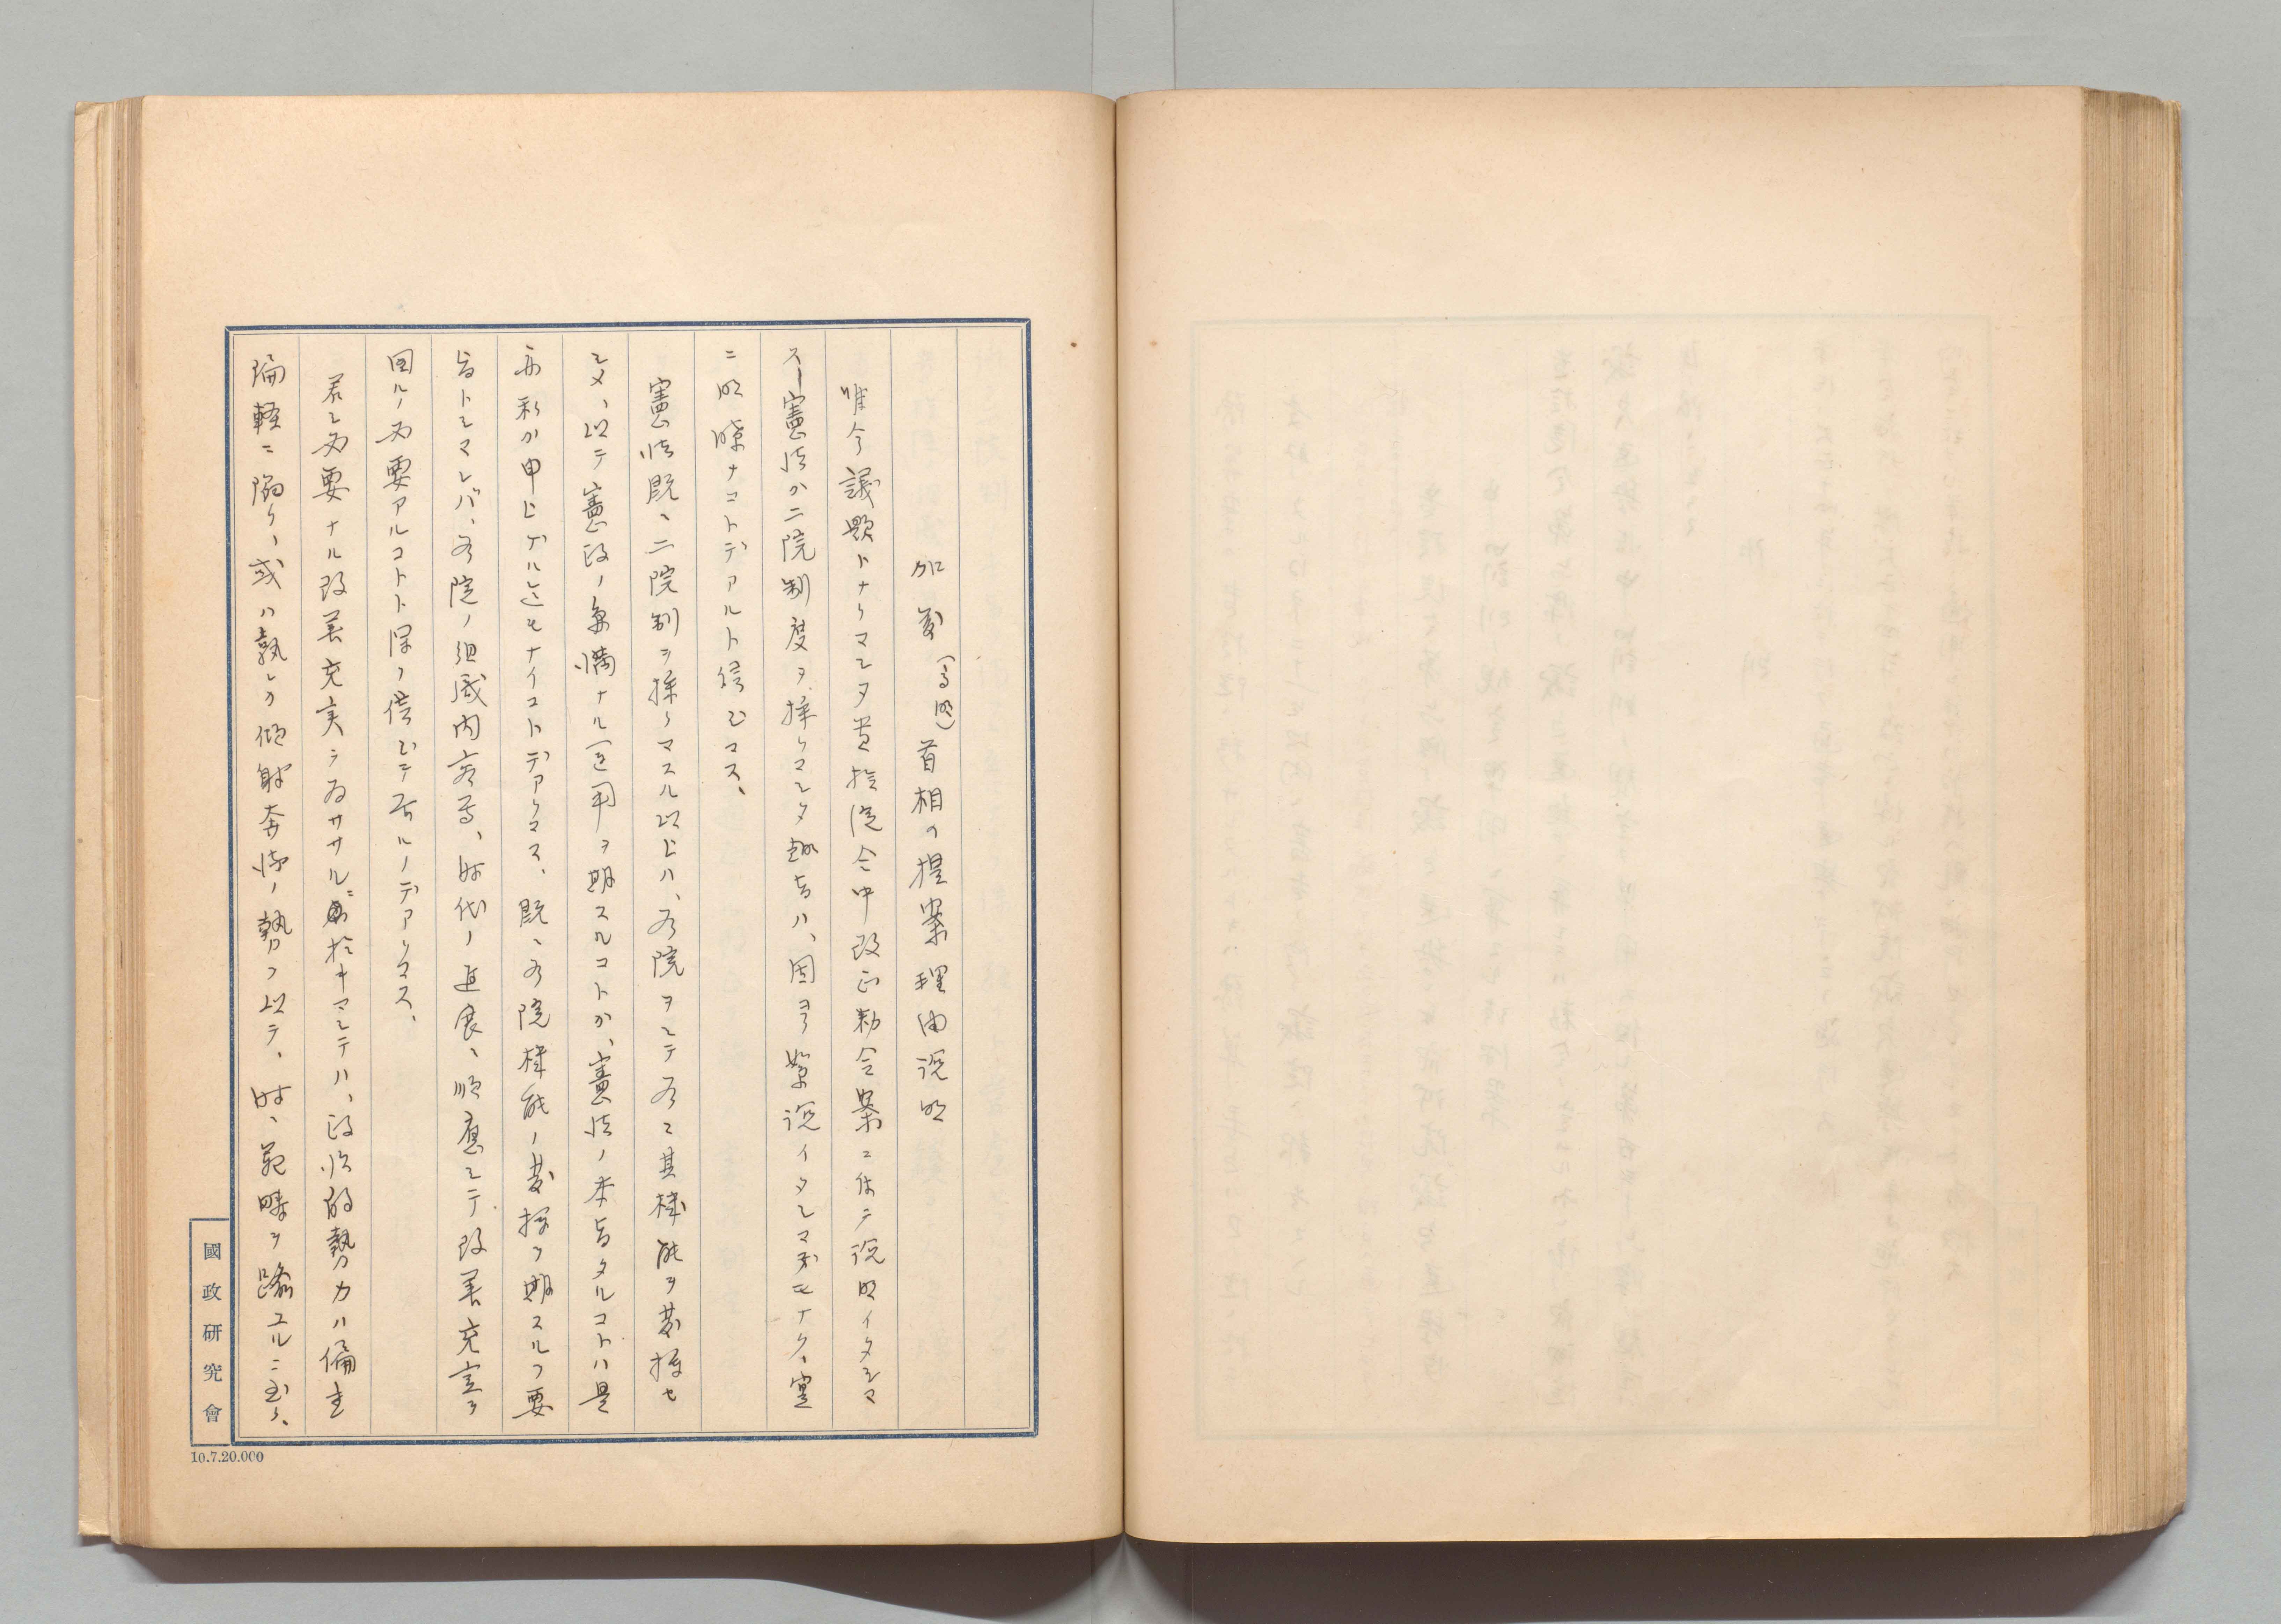 加藤(高明)首相の提案理由説明
唯今議題トナリマシタ貴族院令中改正勅令案ニ付テ説明イタシマ
ス、憲法カ二院制度ヲ採リマシタ趣旨ハ、固ヨリ緊説イタシマスモナク、寔
ニ明瞭ナコトデアルト信シマス、
憲法既ニ二院制ヲ採リマスル以上ハ、各院ヲシテ各々其機能ヲ発揮セ
シメ、以テ憲政ノ円満ナル運用ヲ期スルコトカ、憲法ノ本旨タルコトハ是
亦私カ申上ゲル迄モナイコトデアリマス、既ニ各院機能ノ発揮ヲ期スルヲ要
旨トシマレバ、各院ノ組織内容等、時代ノ進展ニ順応シテ改善充実ヲ
図ルノ必要アルコトト深ク信ジテ居ルノデアリマス、
若シ必要ナル改善充実ヲ為ササルニ於キマシテハ、政治的勢力ハ偏重
偏軽ニ陥リ、或ハ孰レカ傾斜奔流ノ勢ヲ以テ、時ニ範疇ヲ踰エルニ至リ、
國政研究會
10.7.20.000